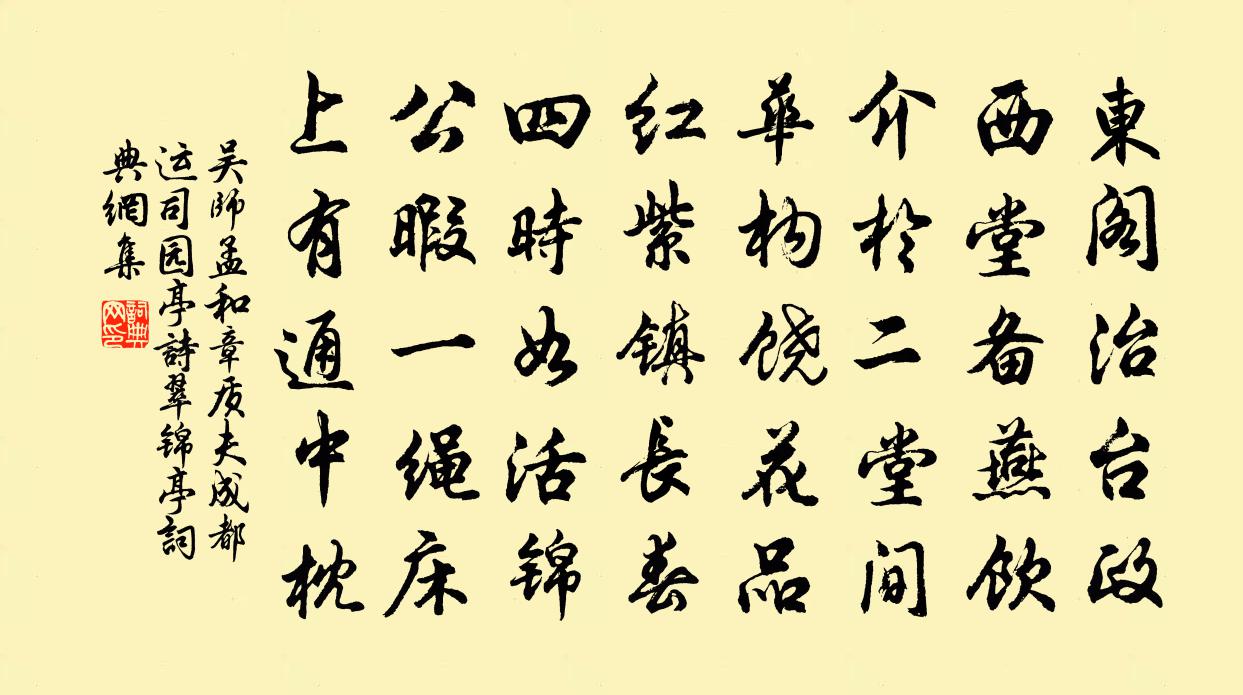 東阁治台政
西堂备燕饮
介於二堂间
華构饶花品
红紫镇長春
四時如活锦
公暇一绳床
上有通中枕
吴師孟和章质夫成都
运司园亭詩翠锦亭詞
典網集
詞典网印